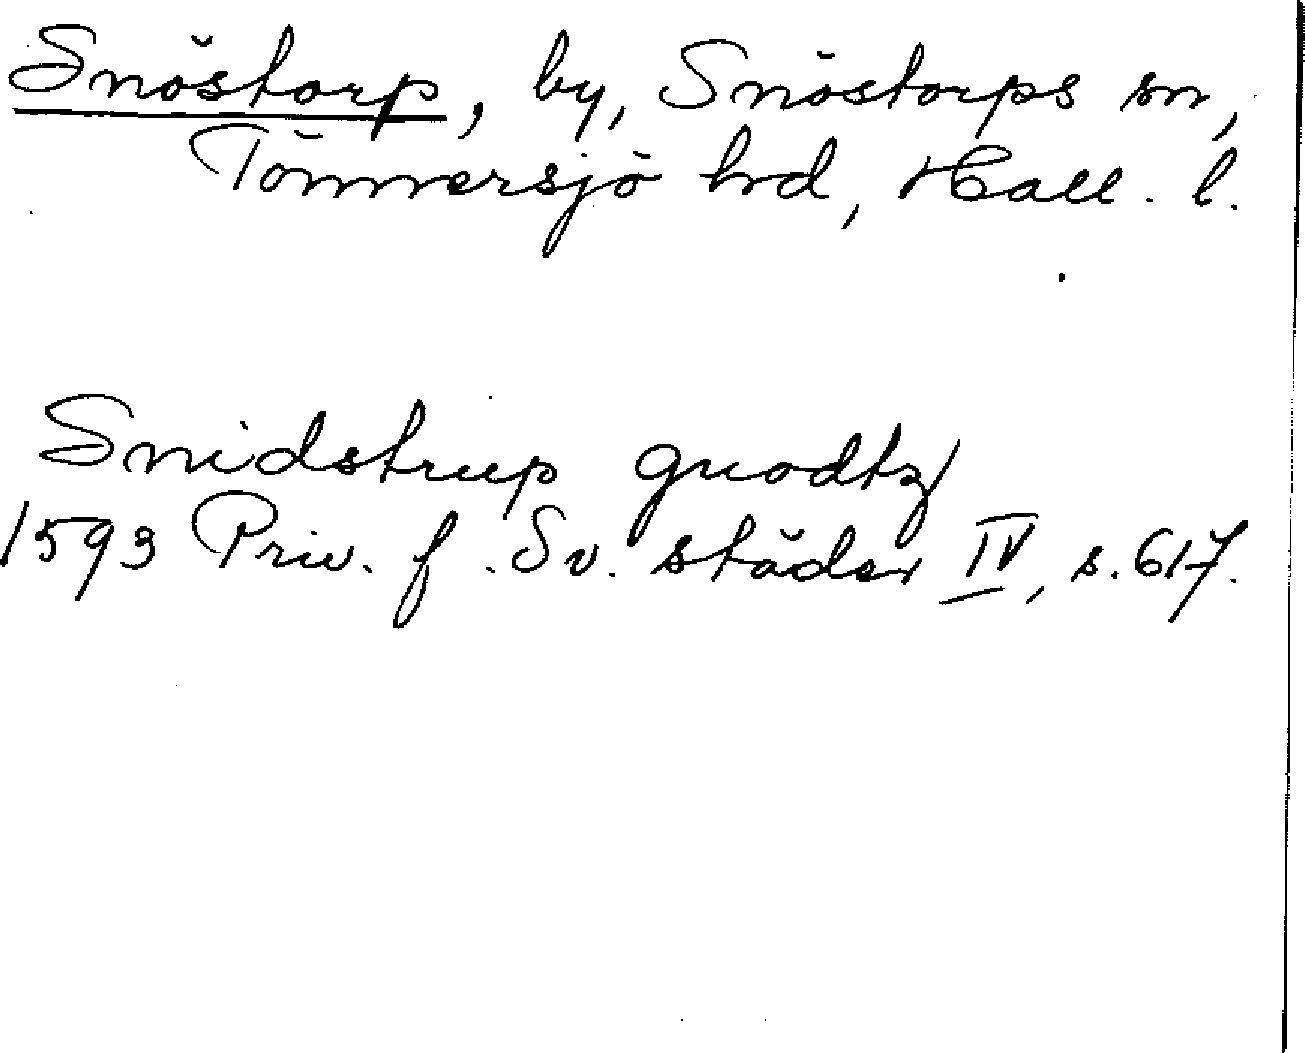 Snöstorp, by, Snöstorps sn,
Tönnersjö hd, Hall. l.
Snidstrup guodtz
1593 Priv. f. Sv. städer IV, s. 617.